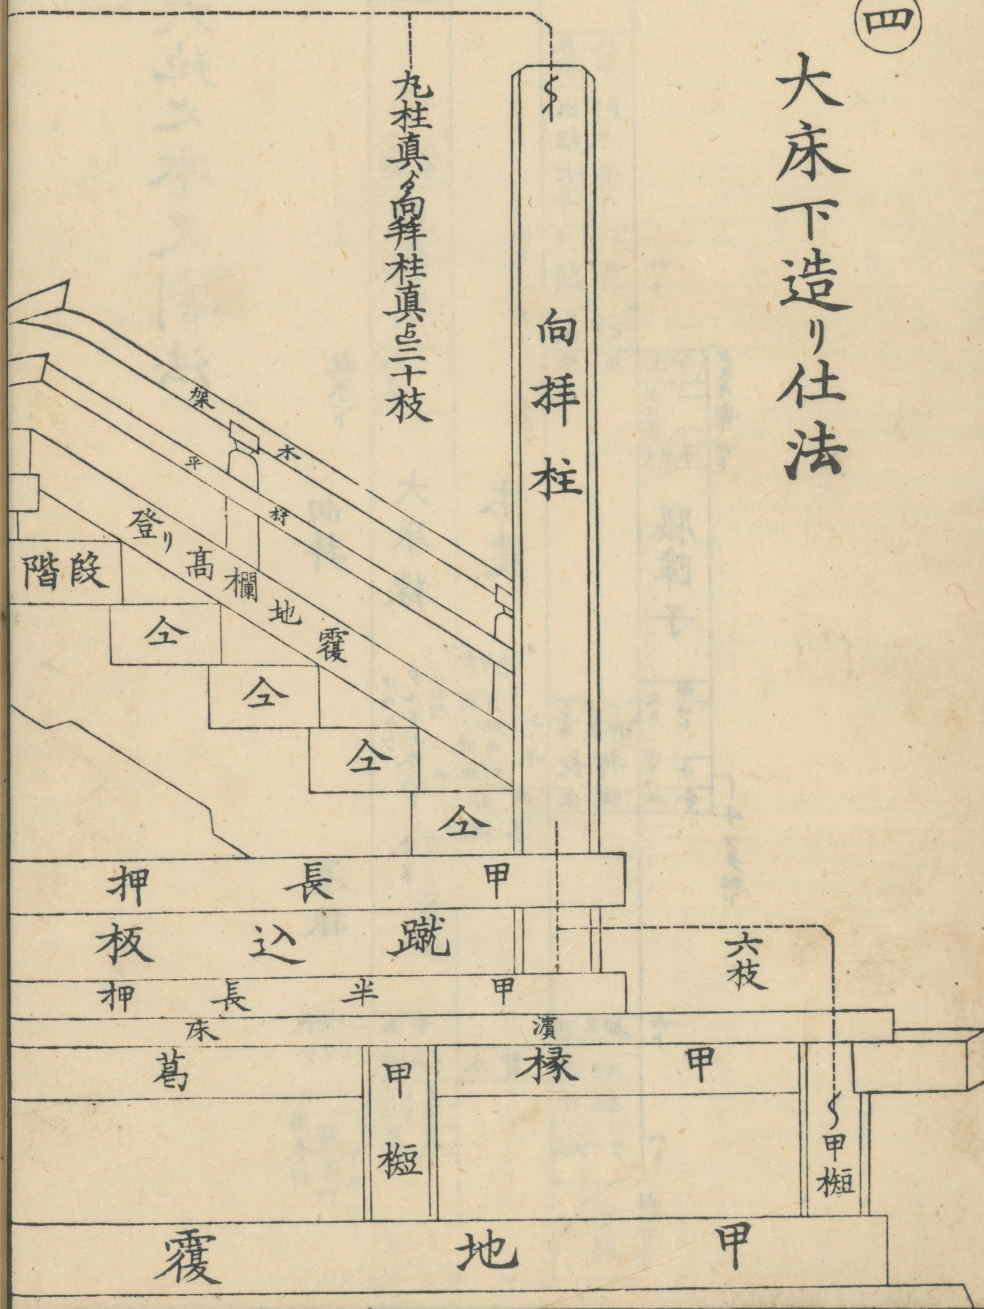 四
大床下造リ仕法
向拝柱
丸柱真ゟ向拜柱真迠三十枝
架木
平桁
登リ高欄地覆
階段
仝
仝
仝
仝
甲長押
蹴込板
甲半長押
濱床
甲縁葛
六枝
甲榏
甲榏
甲地覆